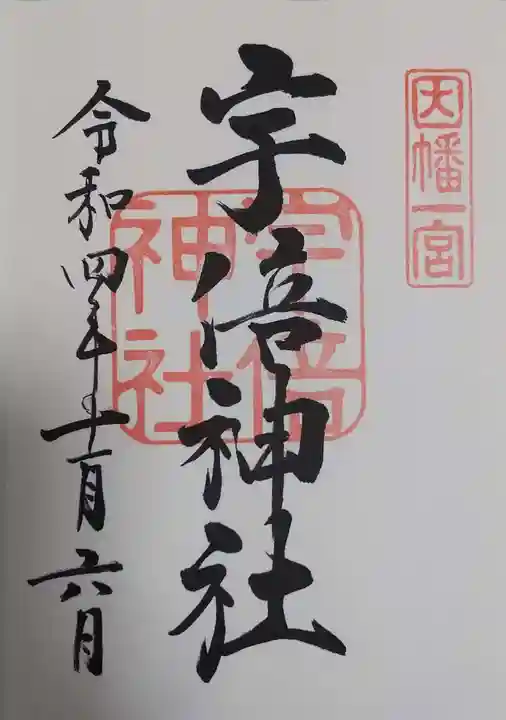 因幡一宮
宇倍神社
宇倍
神社
令和四年十一月六日